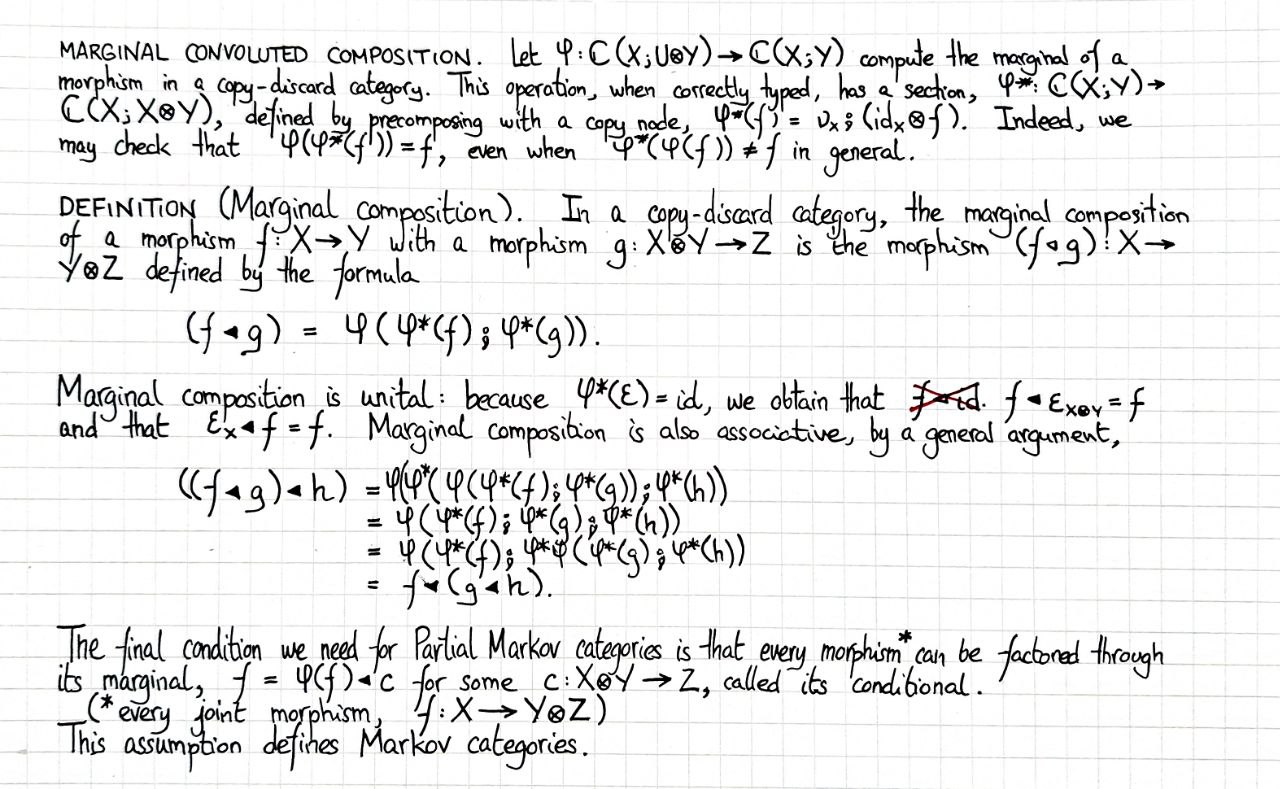 MARGINAL CONVOLUTED COMPOSITION. Let φ: ℂ(X; U⊗Y) → ℂ(X; Y) compute the marginal of a
morphism in a copy-discard category. This operation, when correctly typed, has a section, φ*: ℂ(X; Y) →
ℂ(X; X⊗Y), defined by precomposing with a copy node, φ*(f) = υₓ ⨾ (idₓ ⊗ f). Indeed, we
may check that φ(φ*(f)) = f, even when φ*(φ(f)) ≠ f in general.
DEFINITION (Marginal composition). In a copy-discard category, the marginal composition
of a morphism f: X → Y with a morphism g: X⊗Y → Z is the morphism (f ◂ g): X →
Y⊗Z defined by the formula
(f ◂ g) = φ(φ*(f) ⨾ φ*(g)).
Marginal composition is unital: because φ*(ε) = id, we obtain that f ◂ id. f ◂ ε_X⊗Y = f
and that εₓ ◂ f = f. Marginal composition is also associative, by a general argument,
((f ◂ g) ◂ h) = φ(φ*(φ(φ*(f) ⨾ φ*(g)) ⨾ φ*(h))
= φ(φ*(f) ⨾ φ*(g) ⨾ φ*(h))
= φ(φ*(f) ⨾ φ*φ(φ*(g) ⨾ φ*(h))
= f ◂ (g ◂ h).
The final condition we need for Partial Markov categories is that every morphism* can be factored through
its marginal, f = φ(f) ◂ c for some c: X⊗Y → Z, called its conditional.
(* every joint morphism, f: X → Y⊗Z)
This assumption defines Markov categories.